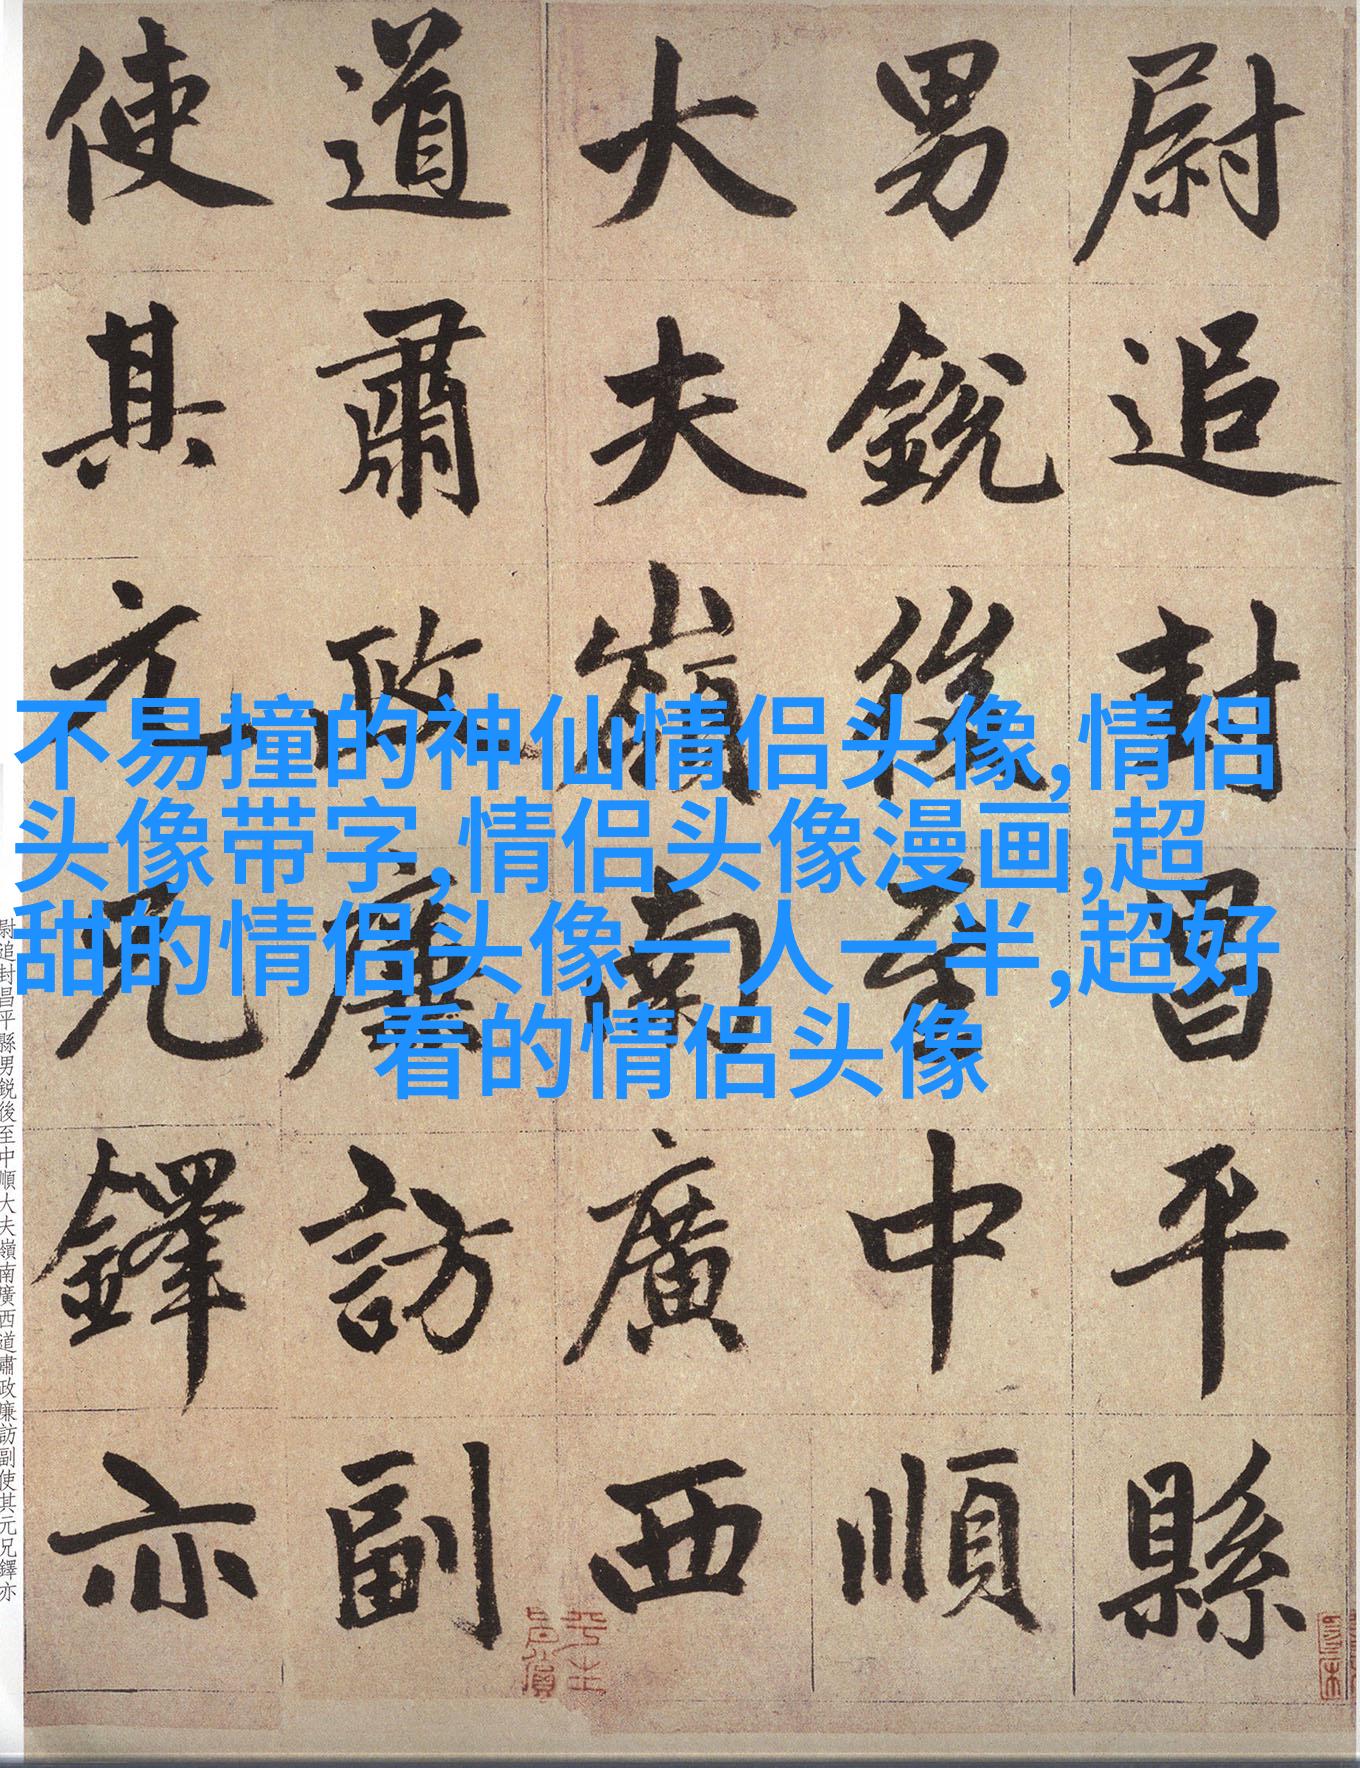 尉追封昌平縣
男銳後至中順
大夫嶺南廣西
道肅政廉訪副
使其元兄鐸亦
不易撞的神仙情侣头像,情侣
头像带字,情侣头像漫画,超
甜的情侣头像一人一半,超好
看的情侣头像
尉追封昌平縣男銳後至中順大夫嶺南廣西道肅政廉訪副使其元兄鐸亦